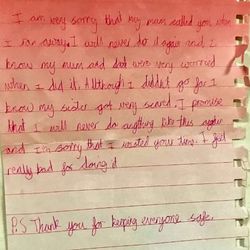 I am very sorry that my mum called you when
I ran away. I will never do it again and I
know my mum and dad were very worried
when I did it. Allthough I diddn't go far I
know my sister got very scared. I promise
that I will never do anything like this again
and I'm sorry that I wasted your time. I feel
really bad for doing it
P.S Thank you for keeping everyone safe.